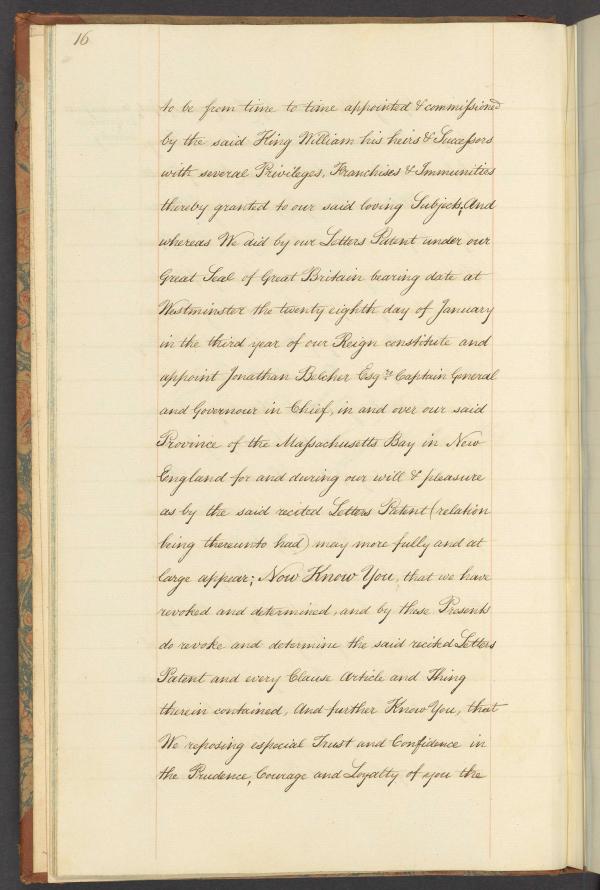 16
to be from time to time appointed & commissioned
by the said King William his heirs & Successors
with several Privileges, Franchises & Immunities
thereby granted to our said loving Subjects, And
whereas We did by our Letters Patent under our
Great Seal of Great Britain bearing date at
Westminster the twenty eighth day of January
in the third year of our Reign constitute and
appoint Jonathan Belcher Esqʳᵉ Captain General
and Governour in Chief, in and over our said
Province of the Massachusetts Bay in New
England for and during our will & pleasure
as by the said recited Letters Patent (relation
being thereunto had) may more fully and at
large appear; Now Know You, that we have
revoked and determined, and by these Presents
do revoke and determine the said recited Letters
Patent and every Clause Article and Thing
therein contained, And further Know You, that
We reposing especial Trust and Confidence in
the Prudence, Courage and Loyalty of you the